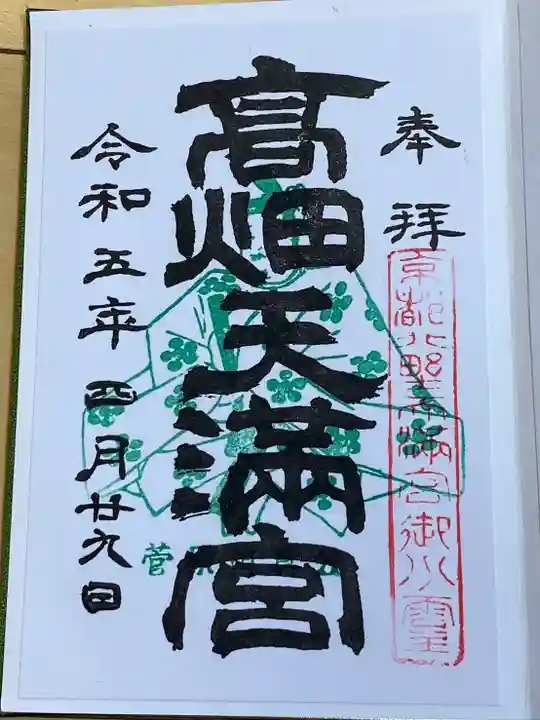 奉拝
京都北野天満宮御分霊
髙畑天満宮
菅
令和五年四月廿九日